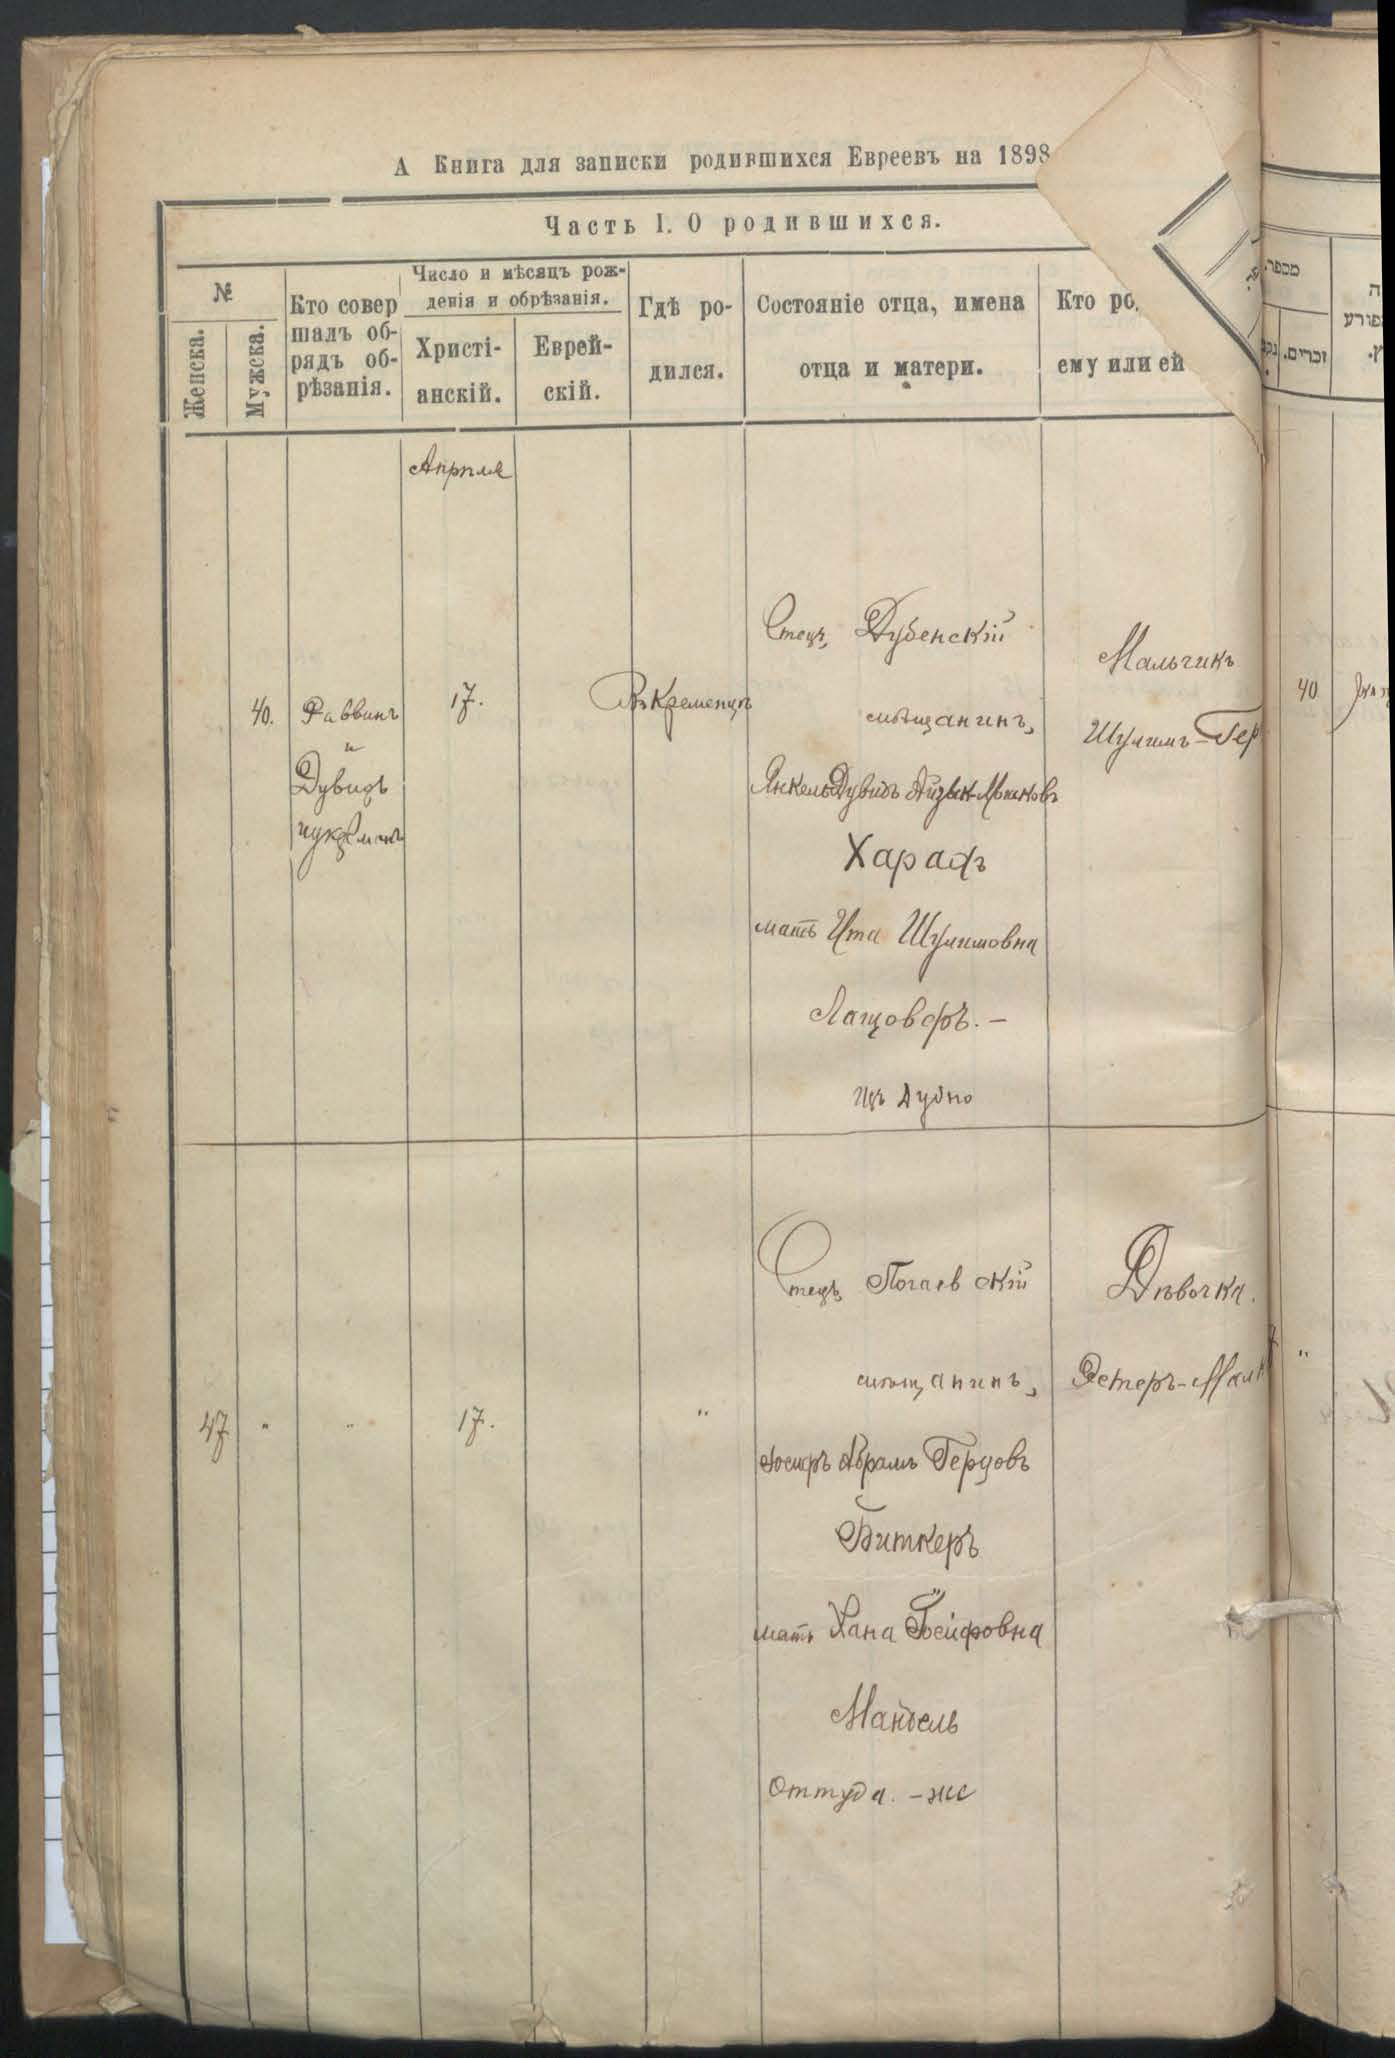 А Книга для записки родившихся Евреевъ на 1898
Часть I. О родившихся.
№
Женска.
Мужска.
Кто совер
шалъ об-
рядъ об-
рѣзанія.
Число и мѣсяцъ рож-
денія и обрѣзанія.
Христі-
анскій.
Еврей-
скій.
Гдѣ ро-
дился.
Состояніе отца, имена
отца и матери.
Кто ро
ему или ей
מספר
זכרים.
Апрѣля
40.
Раввинъ
и
Дувидъ
17.
Въ Кременцѣ
Отецъ, Дубенскій
мѣщанинъ,
Янкель Дувидъ Айзык-Мошковъ
Харафъ
мать Ита Шулимовна
изъ Дубно
Мальчикъ
Шулимъ-Гер
40
47
"
"
17.
"
Отецъ Почаевскій
мѣщанинъ,
Іосифъ Абрамъ Герцовъ
Биткеръ
мать Хана Іосифовна
Мандель
Оттуда.-же
Дѣвочка.
Эстеръ-Малк
"